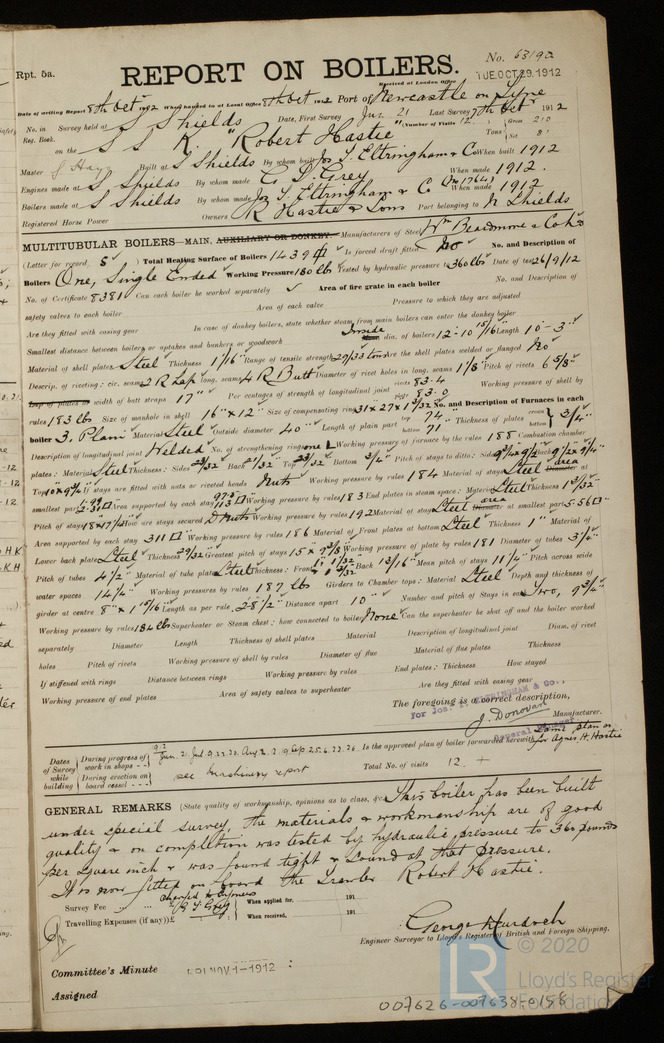 Rpt. 5a.
No. 63192
REPORT ON BOILERS.
Received at London Office TUE. OCT 29. 1912
Date of writing Report 8th Oct 1912 When handed in at Local Office 8th Oct 1912 Port of Newcastle on Tyne
No. in Reg. Book. Survey held at S Shields Date, First Survey Jun 21 Last Survey 7th Oct 1912
on the S S K. "Robert Hastie" (Number of Visits 12) Tons Gross 210 Net 81
Master J Hay Built at S Shields By whom built Jos T. Eltringham & Co When built 1912
Engines made at S Shields By whom made G. T. Grey When made 1912.
Boilers made at S Shields By whom made Jos T. Eltringham & Co (No 1764) When made 1912
Registered Horse Power Owners R Hastie & Sons Port belonging to N Shields
MULTITUBULAR BOILERS—MAIN, AUXILIARY OR DONKEY.—Manufacturers of Steel Wm Beardmore & Co Ltd
(Letter for record S) Total Heating Surface of Boilers 1439 Is forced draft fitted No No. and Description of
Boilers One, Single Ended Working Pressure 180 lb Tested by hydraulic pressure to 360 lb Date of test 26/9/12
No. of Certificate 8381 Can each boiler be worked separately Area of fire grate in each boiler No. and Description of
safety valves to each boiler Area of each valve Pressure to which they are adjusted
Are they fitted with easing gear In case of donkey boilers, state whether steam from main boilers can enter the donkey boiler
Smallest distance between boilers or uptakes and bunkers or woodwork Inside dia. of boilers 12'-10 15/16" Length 10'-3"
Material of shell plates Steel Thickness 1 1/16" Range of tensile strength 29/33 tons Are the shell plates welded or flanged No
Descrip. of riveting: cir. seams 2 R Lap long. seams 4 R Butt Diameter of rivet holes in long. seams 1 1/8" Pitch of rivets 6 5/8"
Lap of plates or width of butt straps 17" Per centages of strength of longitudinal joint rivets 83.4 plate 83.0 Working pressure of shell by
rules 183 lb Size of manhole in shell 16" x 12" Size of compensating ring 31 x 27 x 1 1/32 No. and Description of Furnaces in each
boiler 3. Plain Material Steel Outside diameter 40" Length of plain part top 74" bottom 71" Thickness of plates crown bottom 3/4"
Description of longitudinal joint Welded No. of strengthening rings one L Working pressure of furnace by the rules 188 Combustion chamber
plates: Material Steel Thickness: Sides 23/32 Back 21/32 Top 23/32 Bottom 3/4" Pitch of stays to ditto: Sides 9 3/4 x 9 1/2 Back 9 1/2 x 9 1/4"
Top 10 x 9 3/4" If stays are fitted with nuts or riveted heads Nuts Working pressure by rules 184 Material of stays Steel area Diameter at
smallest part Area supported by each stay Working pressure by rules 183 End plates in steam space: Material Steel Thickness 1 3/32"
Pitch of stays 18 x 17 1/2 How are stays secured D Nuts Working pressure by rules 192 Material of stays Steel area Diameter at smallest part 5.56
Area supported by each stay 311 Working pressure by rules 186 Material of Front plates at bottom Steel Thickness 1" Material of
Lower back plate Steel Thickness 29/32 Greatest pitch of stays 15 x 9 3/8 Working pressure of plate by rules 181 Diameter of tubes 3 1/4"
Pitch of tubes 4 1/2" Material of tube plates Steel Thickness: Front Back 13/16" Mean pitch of stays 11 1/4" Pitch across wide
water spaces 14 1/4" Working pressures by rules 187 lb Girders to Chamber tops: Material Steel Depth and thickness of
girder at centre 8" x 1 5/16 Length as per rule 28 1/2" Distance apart 10" Number and pitch of Stays in each Two, 9 3/4"
Working pressure by rules 184 lb Superheater or Steam chest; how connected to boiler None Can the superheater be shut off and the boiler worked
separately Diameter Length Thickness of shell plates Material Description of longitudinal joint Diam. of rivet
holes Pitch of rivets Working pressure of shell by rules Diameter of flue Material of flue plates Thickness
If stiffened with rings Distance between rings Working pressure by rules End plates: Thickness How stayed
Working pressure of end plates Area of safety valves to superheater Are they fitted with easing gear
The foregoing is a correct description,
for Jos. T. ELTRINGHAM & Co.,
J. Donovan Manufacturer.
General Manager
Dates of Survey while building During progress of work in shops - - Is the approved plan of boiler forwarded herewith Same plan as for Agnes H. Hastie
During erection on board vessel - - - see machinery report Total No. of visits 12.
GENERAL REMARKS (State quality of workmanship, opinions as to class, &c. This boiler has been built
under special survey, the materials & workmanship are of good
quality & on completion was tested by hydraulic pressure to 360 pounds
per square inch & was found tight & sound at that pressure.
It is now fitted on board the Trawler Robert Hastie.
Survey Fee charged to Engineers When applied for, 191
Travelling Expenses (if any) £ When received, 191
George Murdoch
Engineer Surveyor to Lloyd's Register of British and Foreign Shipping.
Committee's Minute FRI. NOV. 1-1912
Assigned
© 2020
LR
Lloyd's Register
Foundation
007626-007638-0158